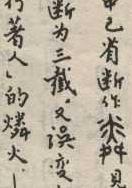 中已省断作舛見
断为三截,又误变
行著人」的燐火—